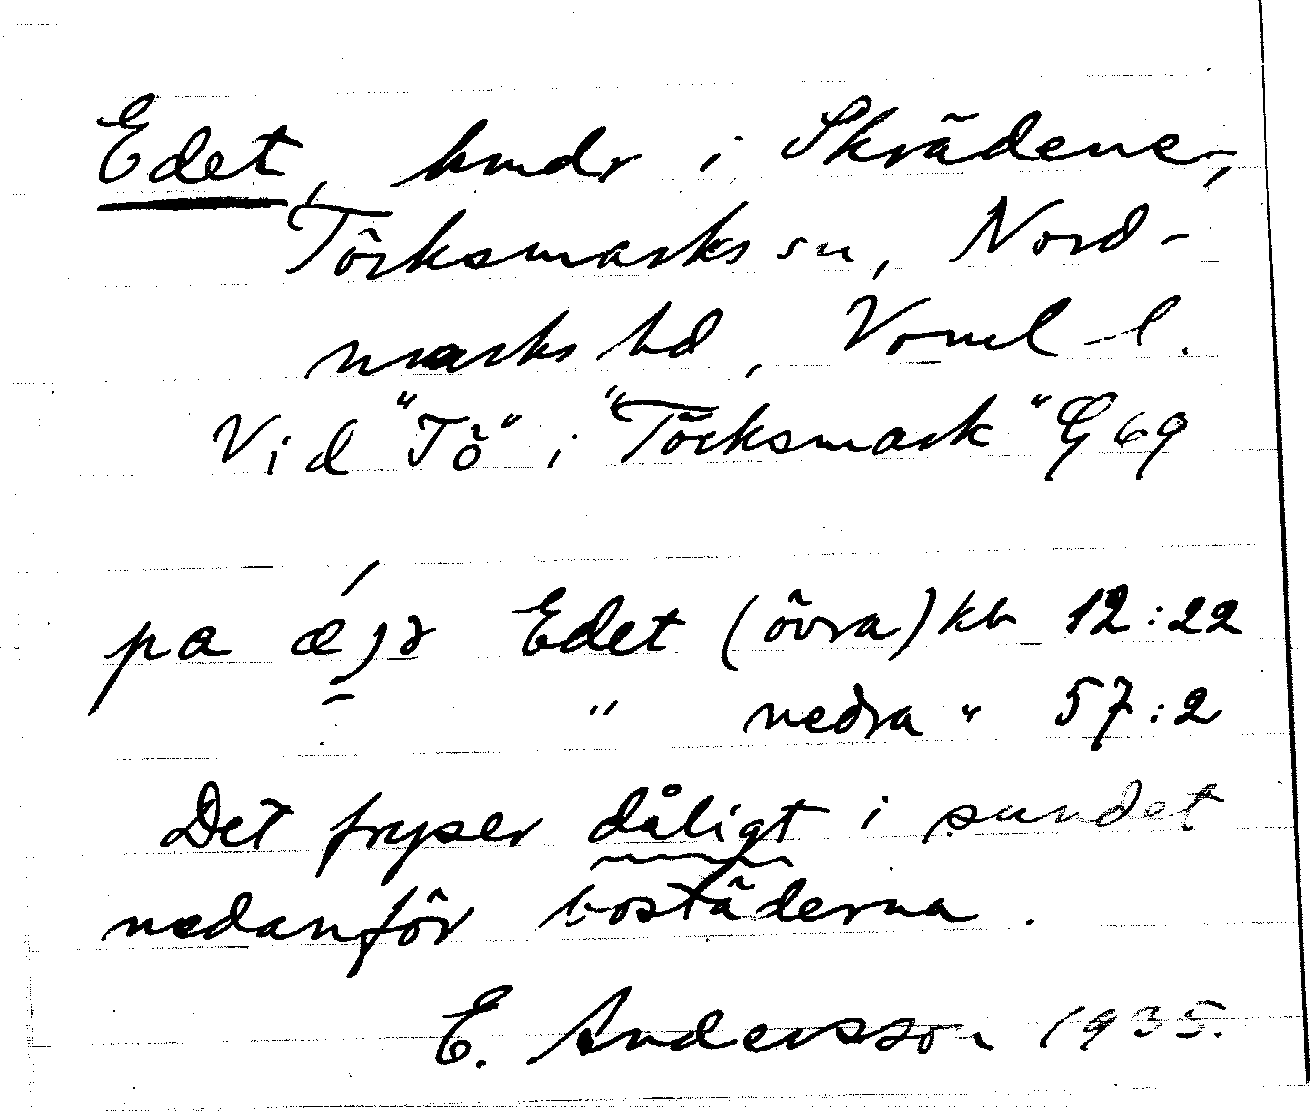 Edet, hmdr i Skrädene,
Töcksmarks sn, Nord-
marks hd, Vrml l.
Vid "Tö" i "Töcksmark" G 69
pa Edet (övra) kb 12:22
" nedra " 57:2
Det fryser dåligt i sundet
nedanför bostäderna.
E. Andersson 1935.